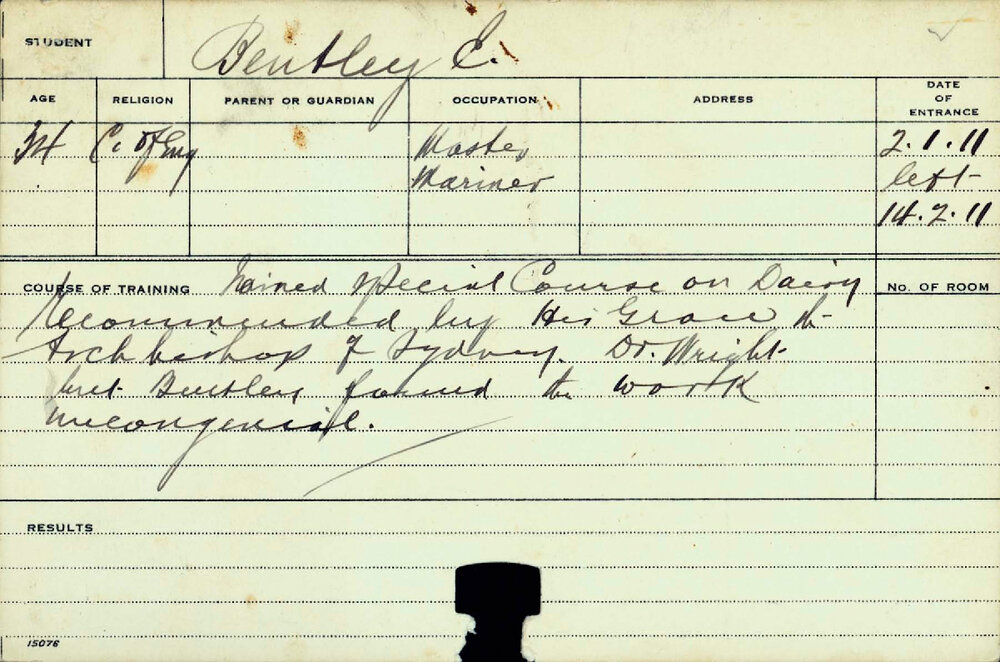 STUDENT Bentley E.
AGE RELIGION PARENT OR GUARDIAN OCCUPATION ADDRESS DATE OF ENTRANCE
34 C. of Eng Master 2.1.11
Mariner left
14.2.11
COURSE OF TRAINING Trained special Course on Dairy No. OF ROOM
Recommended by His Grace the
Archbishop of Sydney. Dr. Wright
but Bentley found the work
uncongenial.
RESULTS
15076